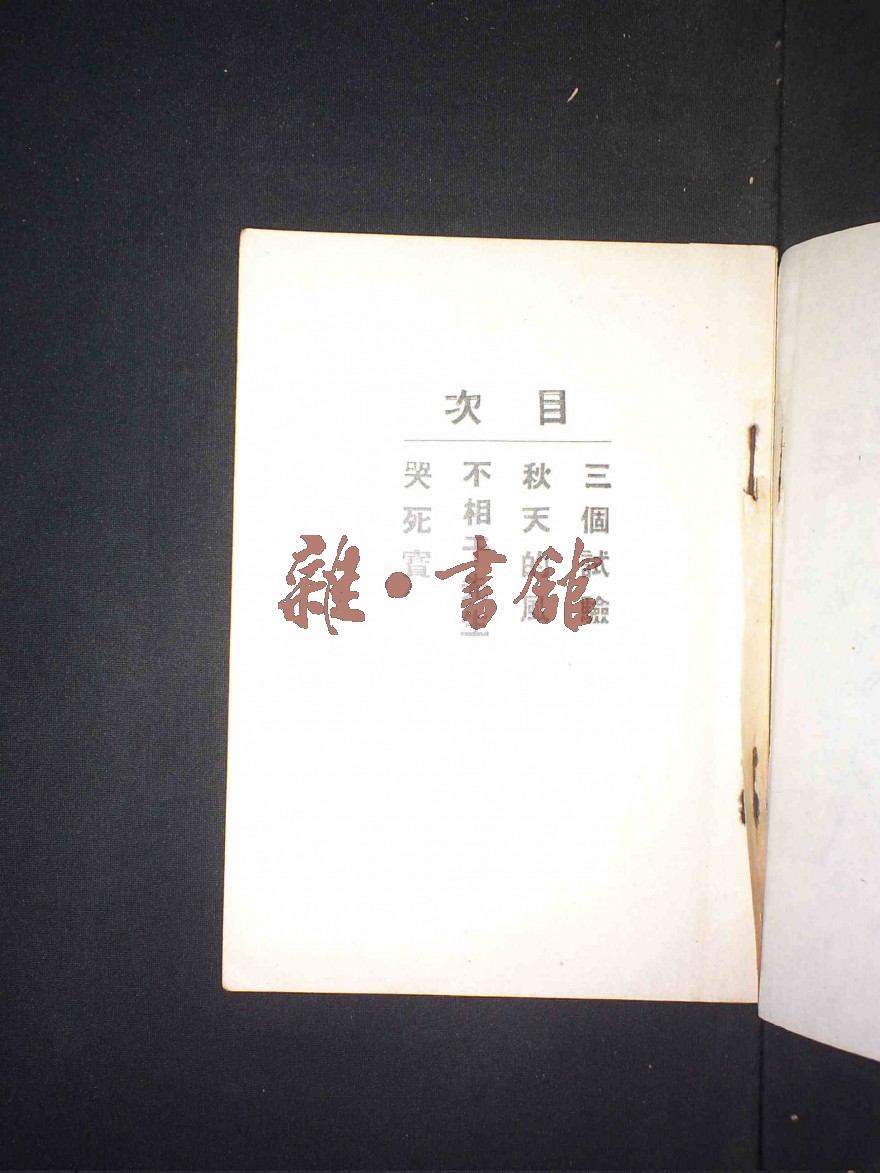 目次
三個試驗
秋天的風
不相
哭死寶
雜·書館